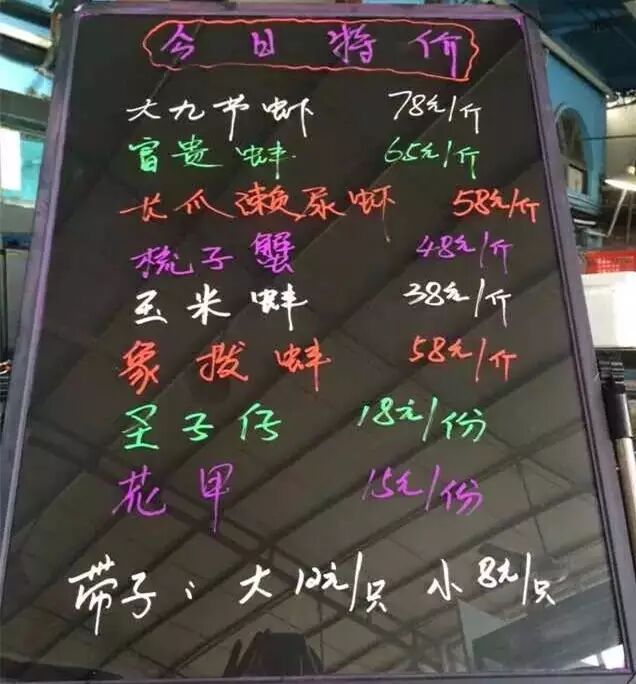 今日特价
大九节虾 78元/斤
富贵蚌 65元/斤
长爪濑尿虾 58元/斤
梳子蟹 48元/斤
玉米蚌 38元/斤
象拨蚌 58元/斤
圣子仔 18元/份
花甲 15元/份
带子: 大10元/只 小8元/只